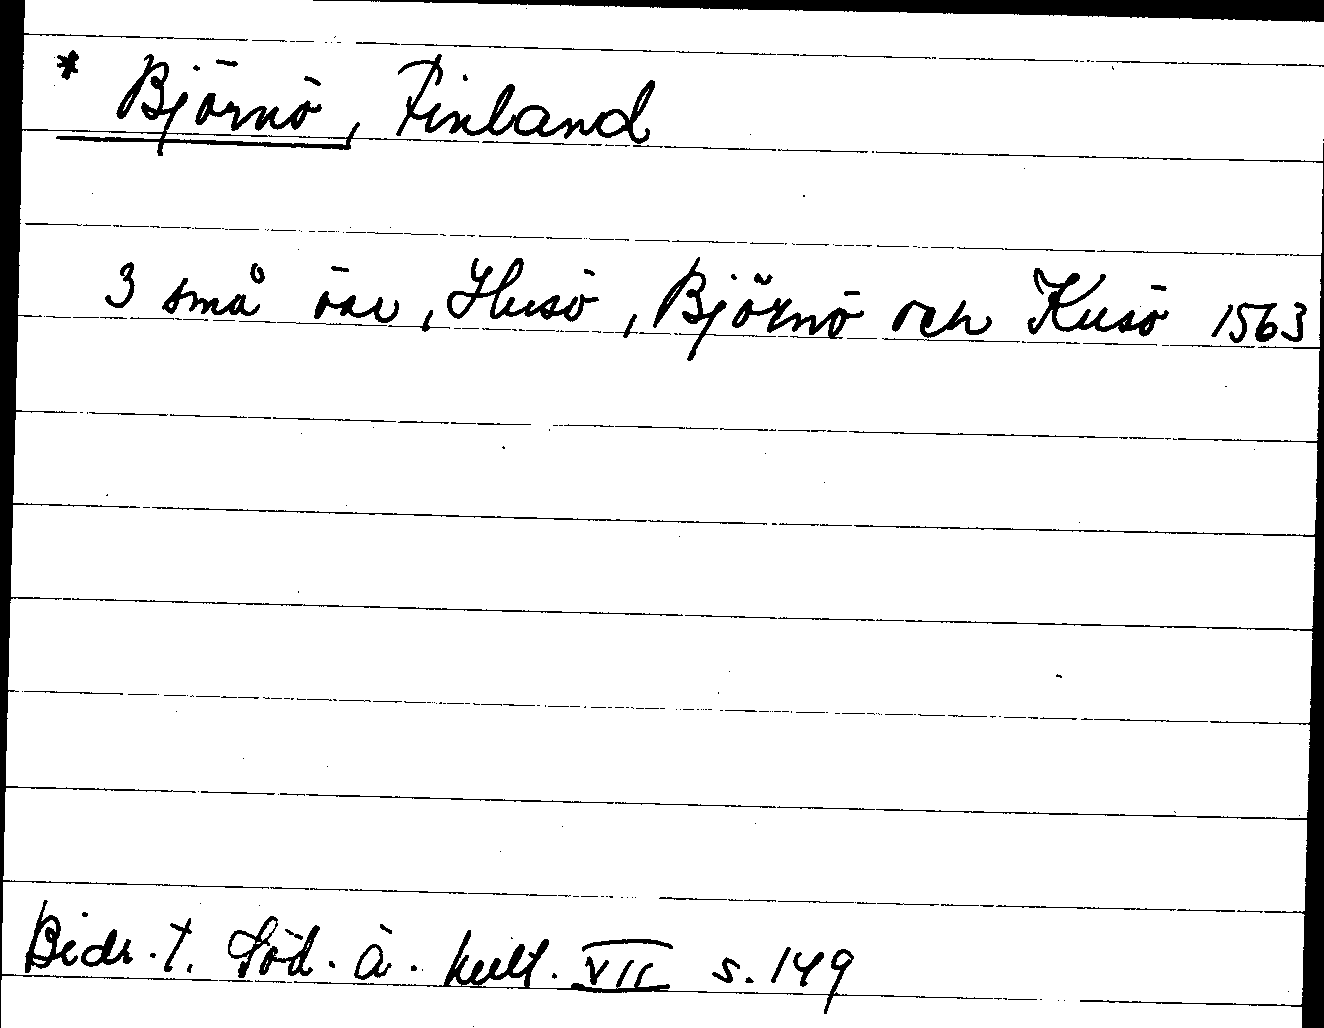 * Björnö, Finland
3 små öar, Husö, Björnö och Kusö 1563
Bidr. t. Söd. ä. kult. VII s. 149